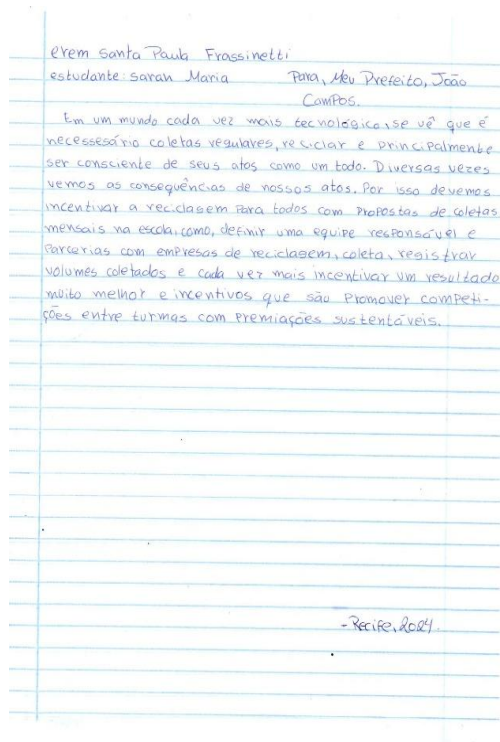 erem Santa Paula Frassinetti
estudante: Sarah Maria Para, Meu Prefeito, João
Campos.
Em um mundo cada vez mais tecnológico, se vê que é
necessesário coletas regulares, reciclar e principalmente
ser consciente de seus atos como um todo. Diversas vezes
vemos as consequências de nossos atos. Por isso devemos
incentivar a reciclagem para todos com propostas de coletas
mensais na escola, como, definir uma equipe responsável e
parcerias com empresas de reciclagem, coleta, registrar
volumes coletados e cada vez mais incentivar um resultado
muito melhor e incentivos que são promover competi-
ções entre turmas com premiações sustentáveis.
-Recife, 2024.